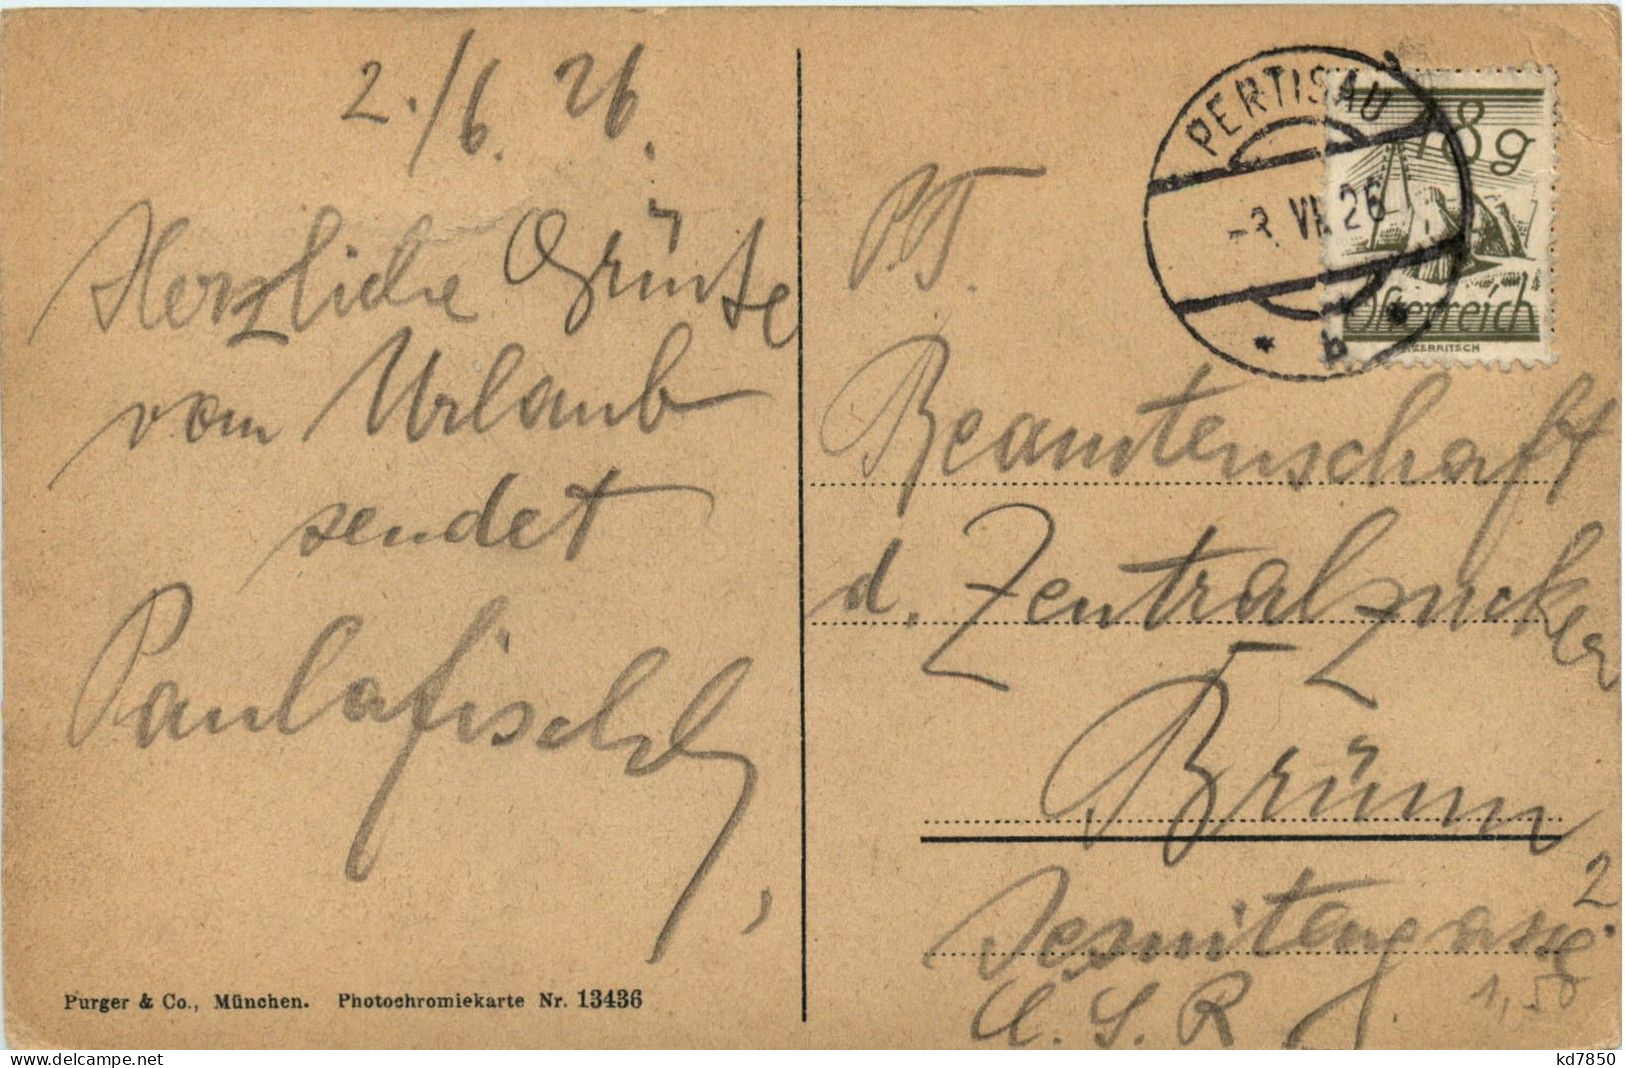 2./6. 26.
Herzliche Grüsse
vom Urlaub
sendet
Purger & Co., München. Photochromiekarte Nr. 13436
PERTISAU
-3. VI. 26
b
18 g
Österreich
P.T.
Beamtenschaft
d. Zentralzucker
Brünn
Jesuitengasse 2
Č. S. R.
1,50
www.delcampe.net
kd7850